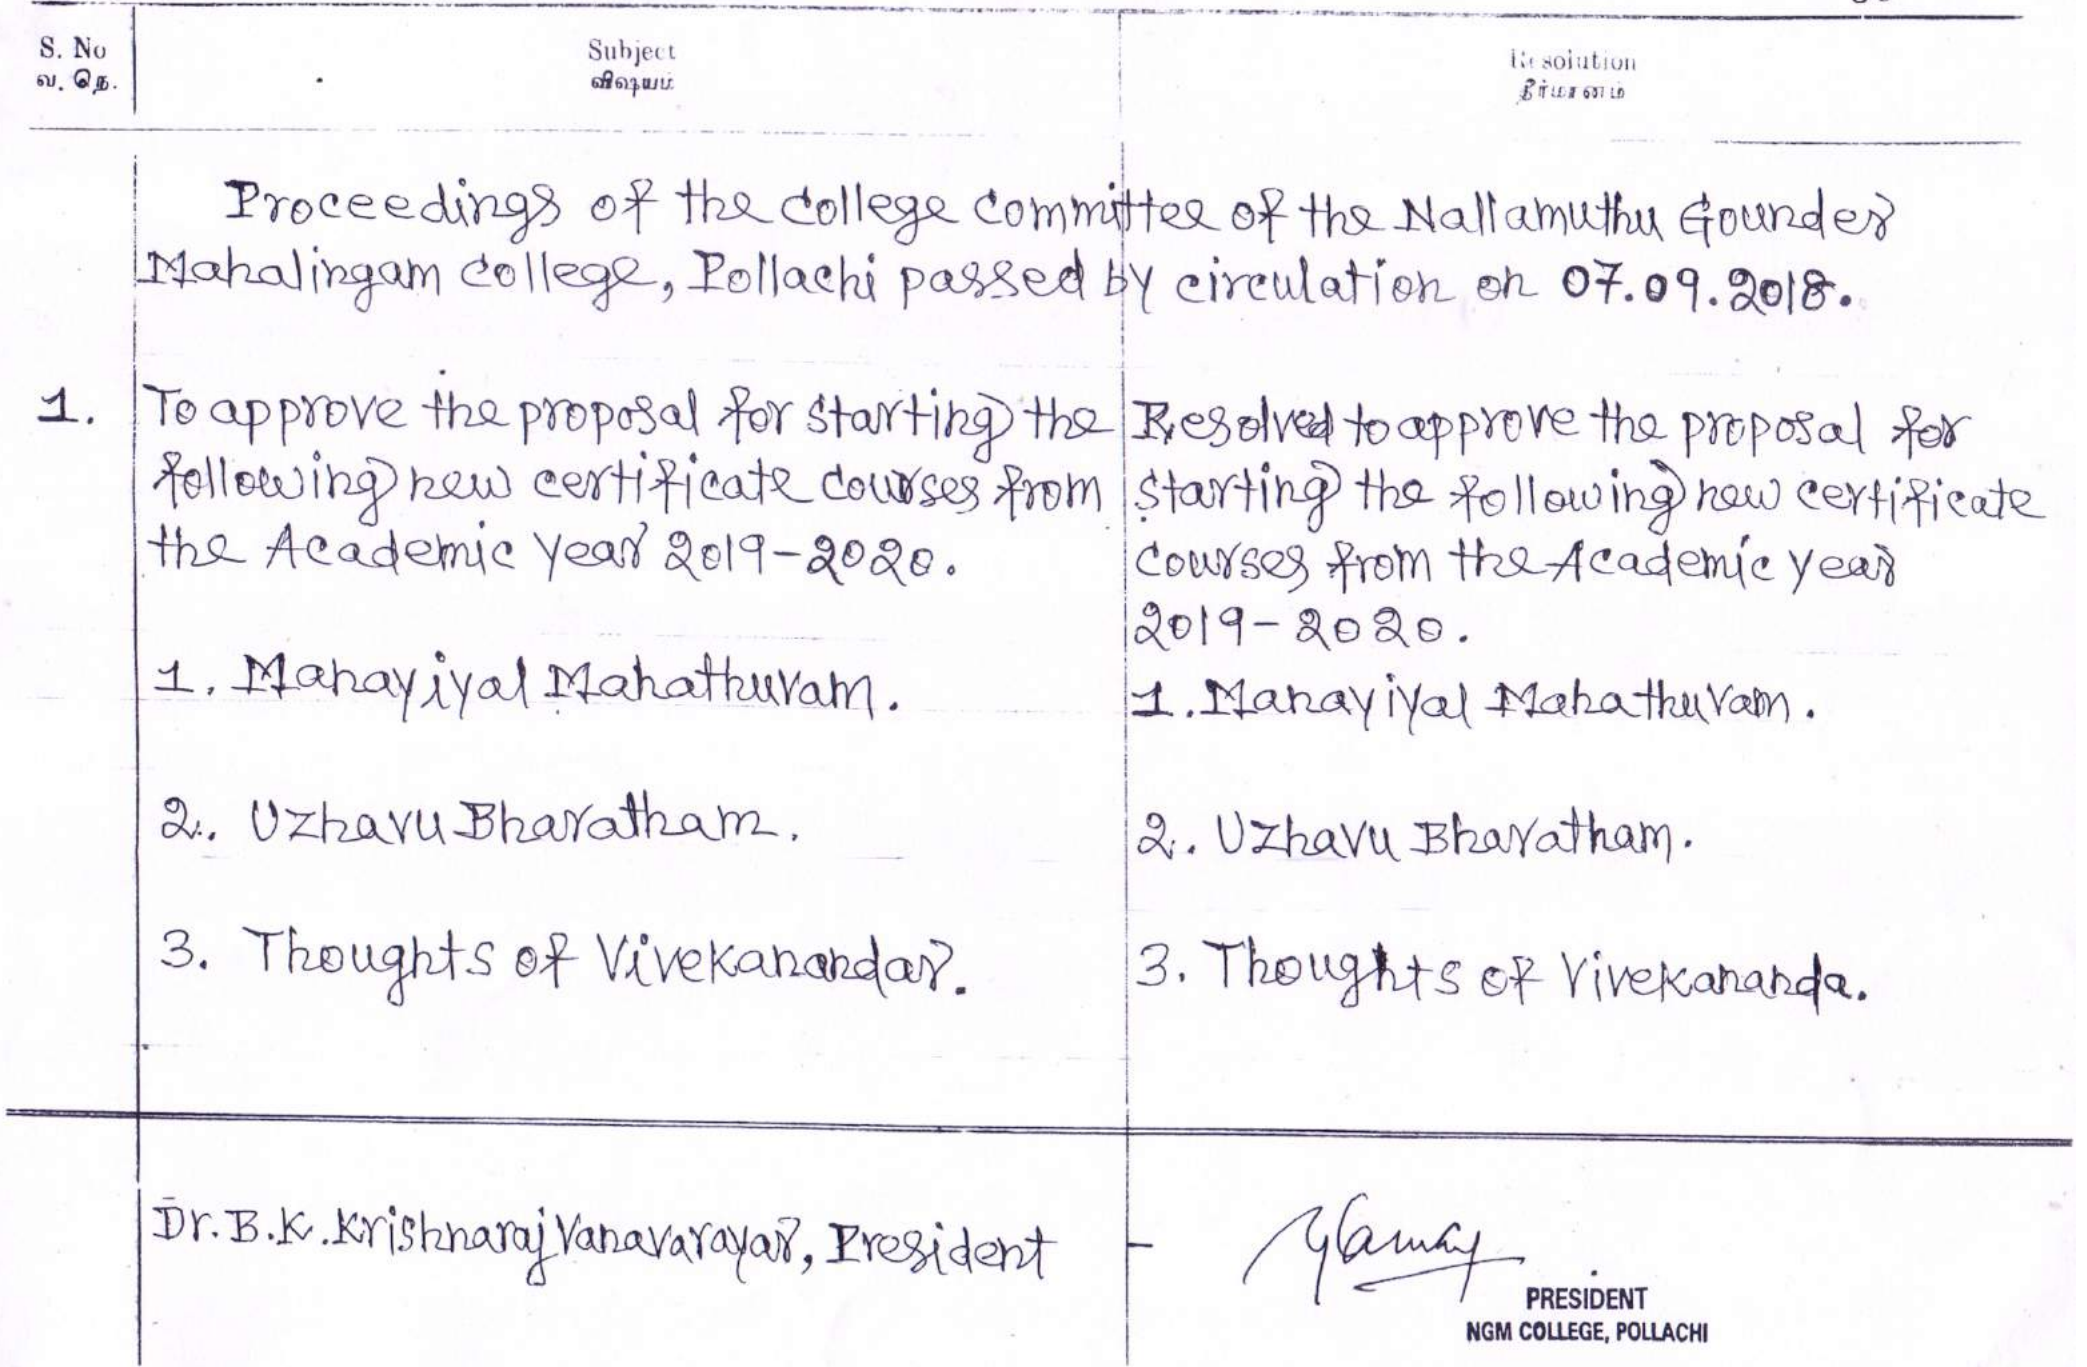 S. No
வ. நெ.
Subject
விஷயம்
Resolution
தீர்மானம்
Proceedings of the College Committee of the Nallamuthu Gounder
Mahalingam College, Pollachi passed by circulation on 07.09.2018.
1.
To approve the proposal for starting the
following new certificate courses from
the Academic year 2019-2020.
1. Manayiyal Mahathuvam.
2. Uzhavu Bharatham.
3. Thoughts of Vivekanandar.
Resolved to approve the proposal for
starting the following new certificate
courses from the Academic year
2019-2020.
1. Manayiyal Mahathuvam.
2. Uzhavu Bharatham.
3. Thoughts of Vivekananda.
Dr. B.K. Krishnaraj Vanavarayar, President -
PRESIDENT
NGM COLLEGE, POLLACHI